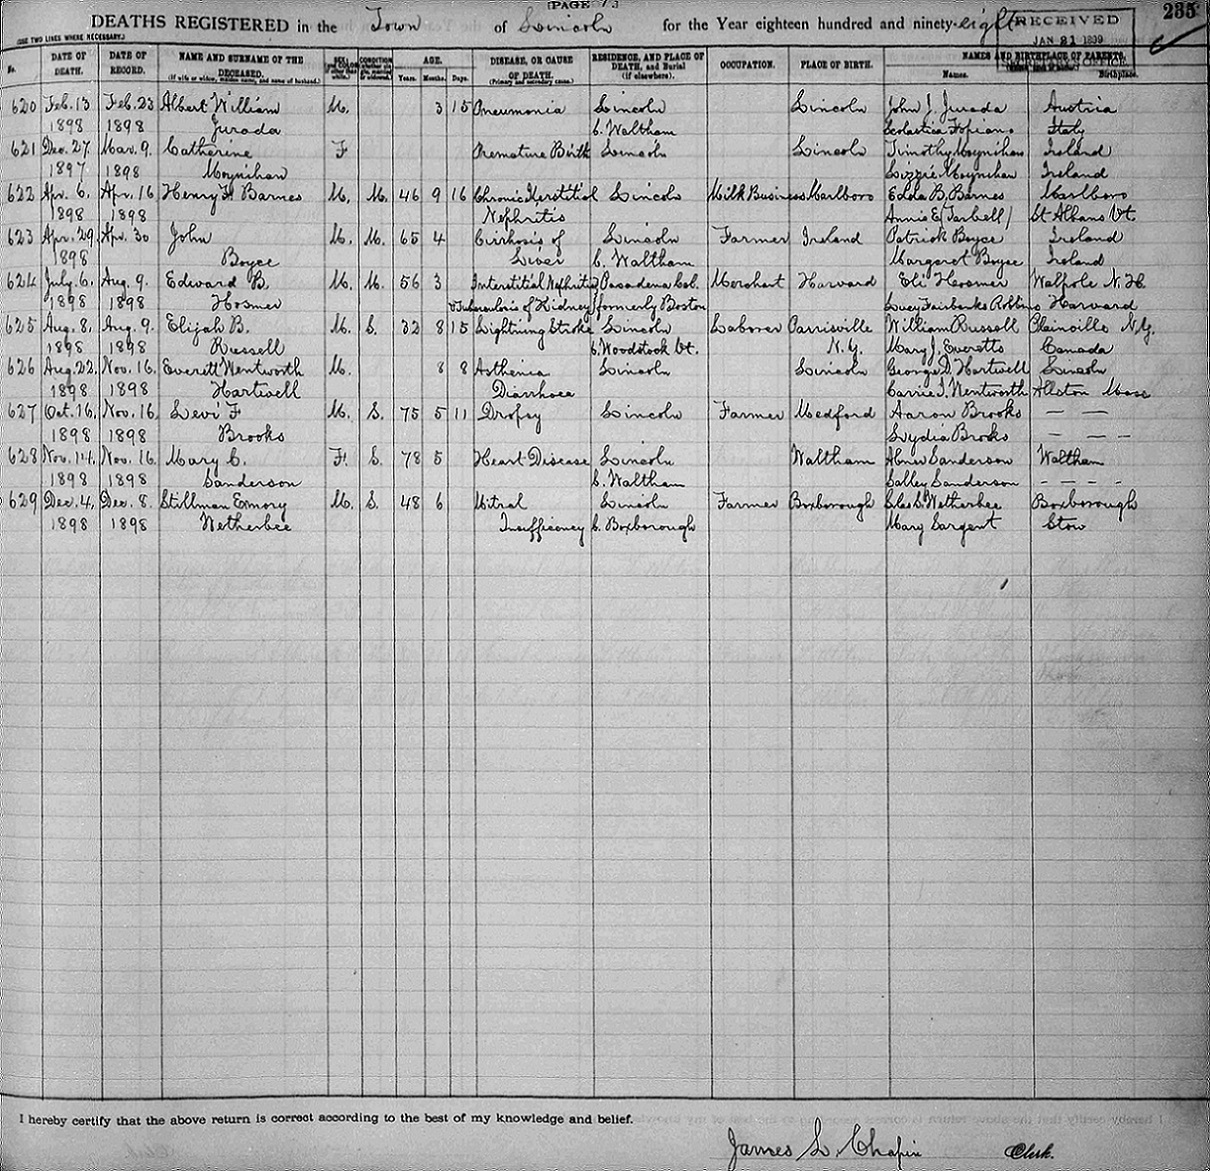 [PAGE 7.]
235
DEATHS REGISTERED in the Town of Lincoln for the Year eighteen hundred and ninety-eight
RECEIVED
JAN 21 1899
(USE TWO LINES WHERE NECESSARY.)
No. DATE OF DEATH. DATE OF RECORD. NAME AND SURNAME OF THE DECEASED. CONDITION AGE. Years. Months. Days. DISEASE, OR CAUSE OF DEATH. RESIDENCE, AND PLACE OF DEATH, and Burial (if elsewhere). OCCUPATION. PLACE OF BIRTH. NAMES AND BIRTHPLACE OF PARENTS. Names. Birthplace.
620 Feb. 13 Feb. 23 Albert William M. 3 15 Pneumonia Lincoln Lincoln John J. Jurada Austria
1898 1898 Jurada b. Waltham Scolastica Italy
621 Dec. 27 Mar. 9. Catherine F Premature Birth Lincoln Lincoln Timothy Moynihan Ireland
1897 1898 Moynihan Lizzie Moynihan Ireland
622 Apr. 6. Apr. 16 Henry F. Barnes M. M. 46 9 16 Chronic Lincoln Milk Business Marlboro B. Barnes Marlboro
1898 1898 Nephritis Annie E. (Tarbell) St Albans Vt.
623 Apr. 29. Apr. 30 John M. M. 65 4 Cirrhosis of Lincoln Farmer Ireland Patrick Boyce Ireland
1898 Boyce Liver b. Waltham Margaret Boyce Ireland
624 July 6. Aug. 9. Edward B. M. M. 56 3 Interstitial Nephritis Pasadena Cal. Merchant Harvard Eli Hosmer Walpole N. H.
1898 1898 Hosmer Tuberculosis of Kidney formerly Boston Lucy Fairbanks Robbins Harvard
625 Aug. 8. Aug. 9. Elijah B. M. S. 32 8 15 Lightning Stroke Lincoln Laborer Parrisville William Russell Plainville N.Y.
1898 1898 Russell b. Woodstock Vt. N.Y. Mary J. Everetts Canada
626 Aug. 22. Nov. 16. Everett Wentworth M. 8 8 Asthenia Lincoln Lincoln George D. Hartwell Lincoln
1898 1898 Hartwell Diarrhoea Carrie I. Wentworth Allston Mass
627 Oct. 16. Nov. 16. Levi F M. S. 75 5 11 Dropsy Lincoln Farmer Medford Aaron Brooks — —
1898 1898 Brooks Lydia Brooks — — —
628 Nov. 14. Nov. 16. Mary C. F. S. 78 5 Heart Disease Lincoln Waltham Abner Sanderson Waltham
1898 1898 Sanderson b. Waltham Salley Sanderson — — — —
629 Dec. 4. Dec. 8. Stillman Emory M. S. 48 6 Mitral Lincoln Farmer Boxborough Silas S. Wetherbee Boxborough
1898 1898 Wetherbee Insufficiency b. Boxborough Mary Sargent Stow
I hereby certify that the above return is correct according to the best of my knowledge and belief.
James L. Chapin Clerk.